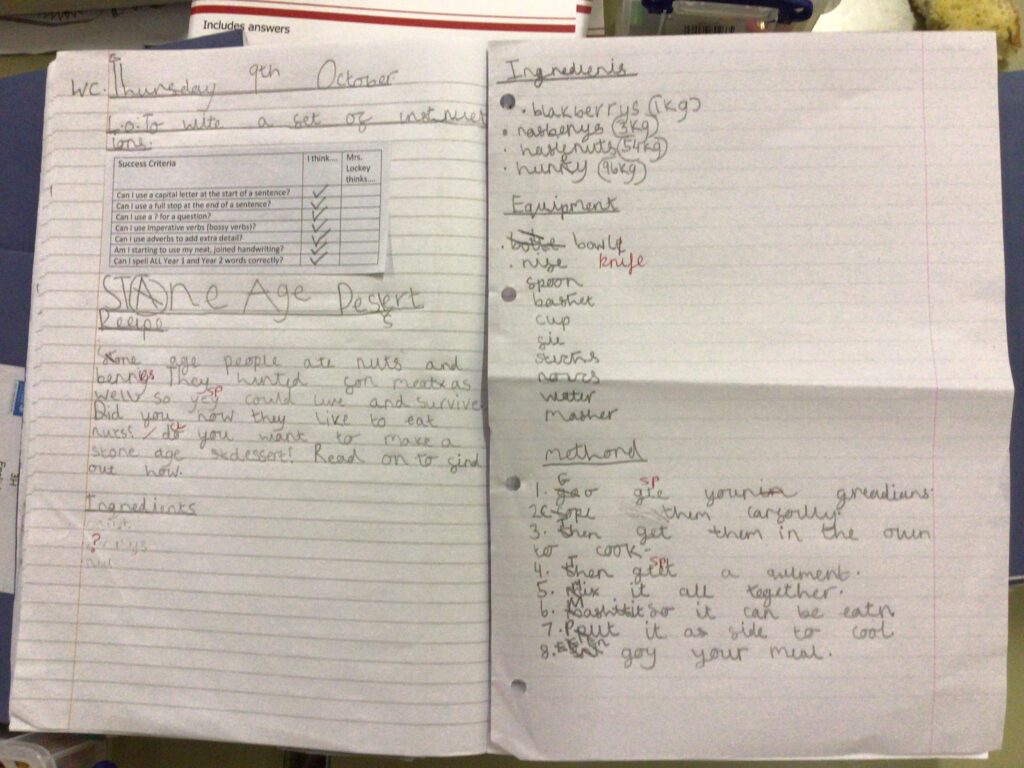 Includes answers
WC. Thursday 9th October
L.o. To write a set of instruct
ions.
Success Criteria I think.... Mrs. Lockey thinks....
Can I use a capital letter at the start of a sentence? ✓
Can I use a full stop at the end of a sentence? ✓
Can I use a ? for a question? ✓
Can I use imperative verbs (bossy verbs)? ✓
Can I use adverbs to add extra detail? ✓
Am I starting to use my neat, joined handwriting? ✓
Can I spell ALL Year 1 and Year 2 words correctly? ✓
STAne Age Desert
s
Recipe
Stone age people ate nuts and
berries They hunted for meat as
sp
well so yef could live and survive
Did you now they like to eat
nuts! do you want to make a
stone age dessert! Read on to find
out how.
Ingredients
?
nut
Ingredients
• blakberrys (1kg)
• rasberrys (3kg)
• haseynuts (54kg)
• hunny (96kg)
Equipment
• bowle
• nife knife
spoon
basket
cup
sie
water
masher
methord
G sp
1. gao gte your in greadians
2. Chope them carfolly.
3. then get them in the oven
to cook.
T sp
4. then gtet a aulment.
5. Mix it all together.
6. Mash it so it can be eatn
7. Pput it as side to cool
8. En goy your meal.